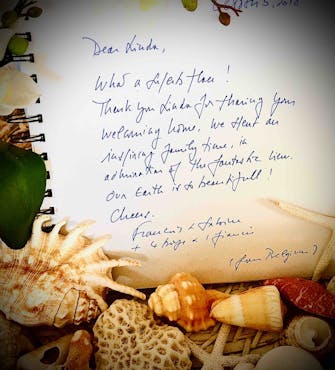 Dear Linda,
What a
Thank you Linda for sharing your
welcoming home. We spent an
inspiring family time, in
admiration of the fantastic view.
Our Earth is so beautifull!
Cheers.
Francis &
+ 4 boys + 1
(from Belgium)